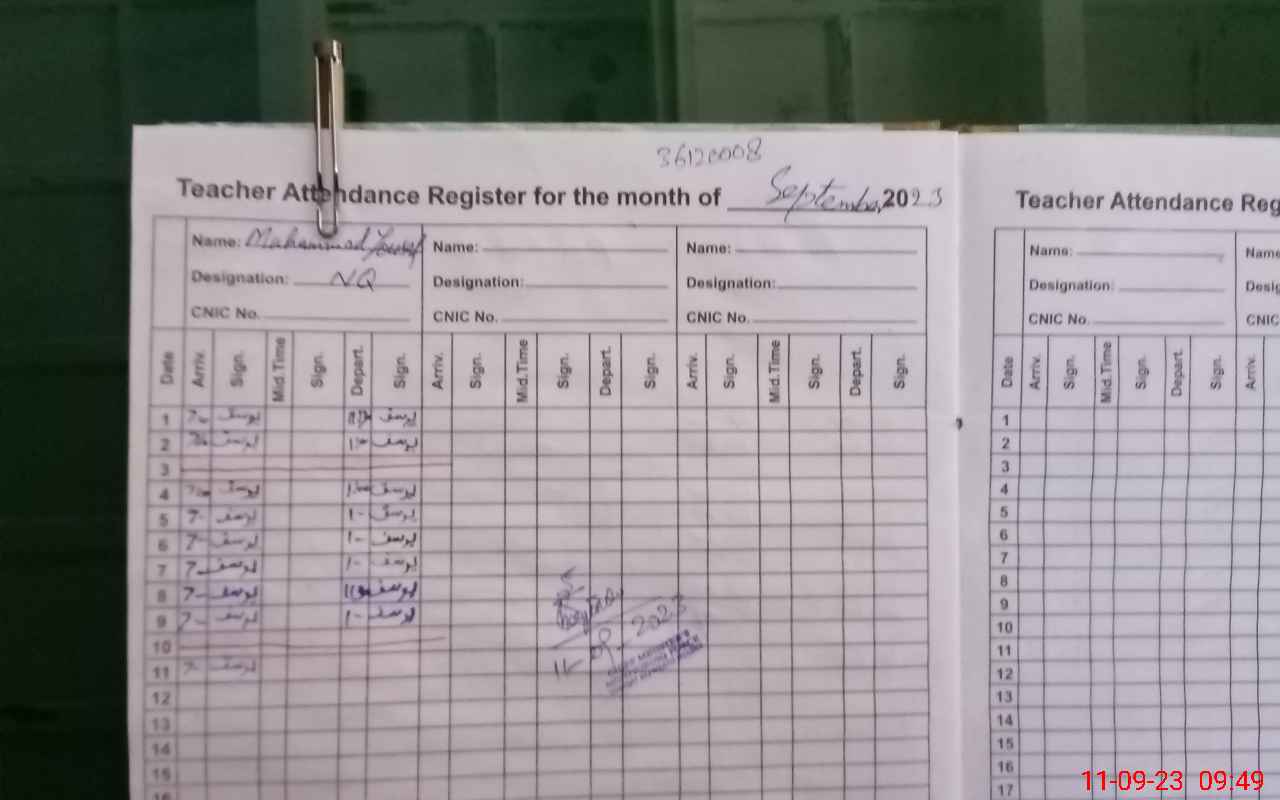 36120008
Teacher Attendance Register for the month of September 2023
Teacher Attendance Reg
Name: Muhammad Yousaf
Designation: NQ
CNIC No.
Name:
Designation:
CNIC No.
Name:
Designation:
CNIC No.
Name:
Designation:
CNIC No.
Name
Desig
CNIC
Date Arriv. Sign. Mid.Time Sign. Depart. Sign. Arriv. Sign. Mid.Time Sign. Depart. Sign. Arriv. Sign. Mid.Time Sign. Depart. Sign.
Date Arriv. Sign. Mid.Time Sign. Depart. Sign. Arriv.
1 یوسف یوسف
2 یوسف یوسف
3
4 یوسف یوسف
5 7- یوسف 1- یوسف
6 7- یوسف 1- یوسف
7 7- یوسف 1- یوسف
8 7- یوسف یوسف
9 7- یوسف 1- یوسف
10
11 7- یوسف
12
13
14
15
16
11-09-2023
1
2
3
4
5
6
7
8
9
10
11
12
13
14
15
16
17
11-09-23 09:49